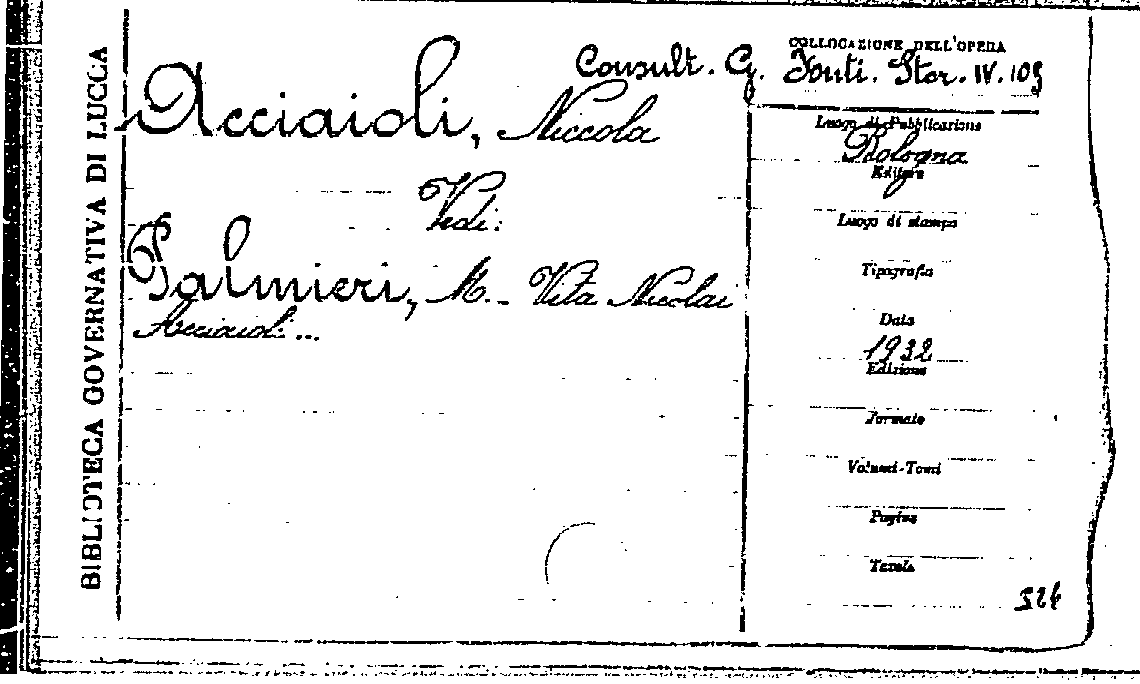 BIBLIOTECA GOVERNATIVA DI LUCCA
COLLOCAZIONE DELL'OPERA
Consult. G. Fonti. Stor. IV. 109
Acciaioli, Niccola
Vedi:
Palmieri, M. - Vita Nicolai
Acciaioli ...
Luogo di Pubblicazione
Bologna
Editore
Luogo di stampa
Tipografia
Data
1932
Edizione
Formato
Volumi-Tomi
Pagine
Tavole